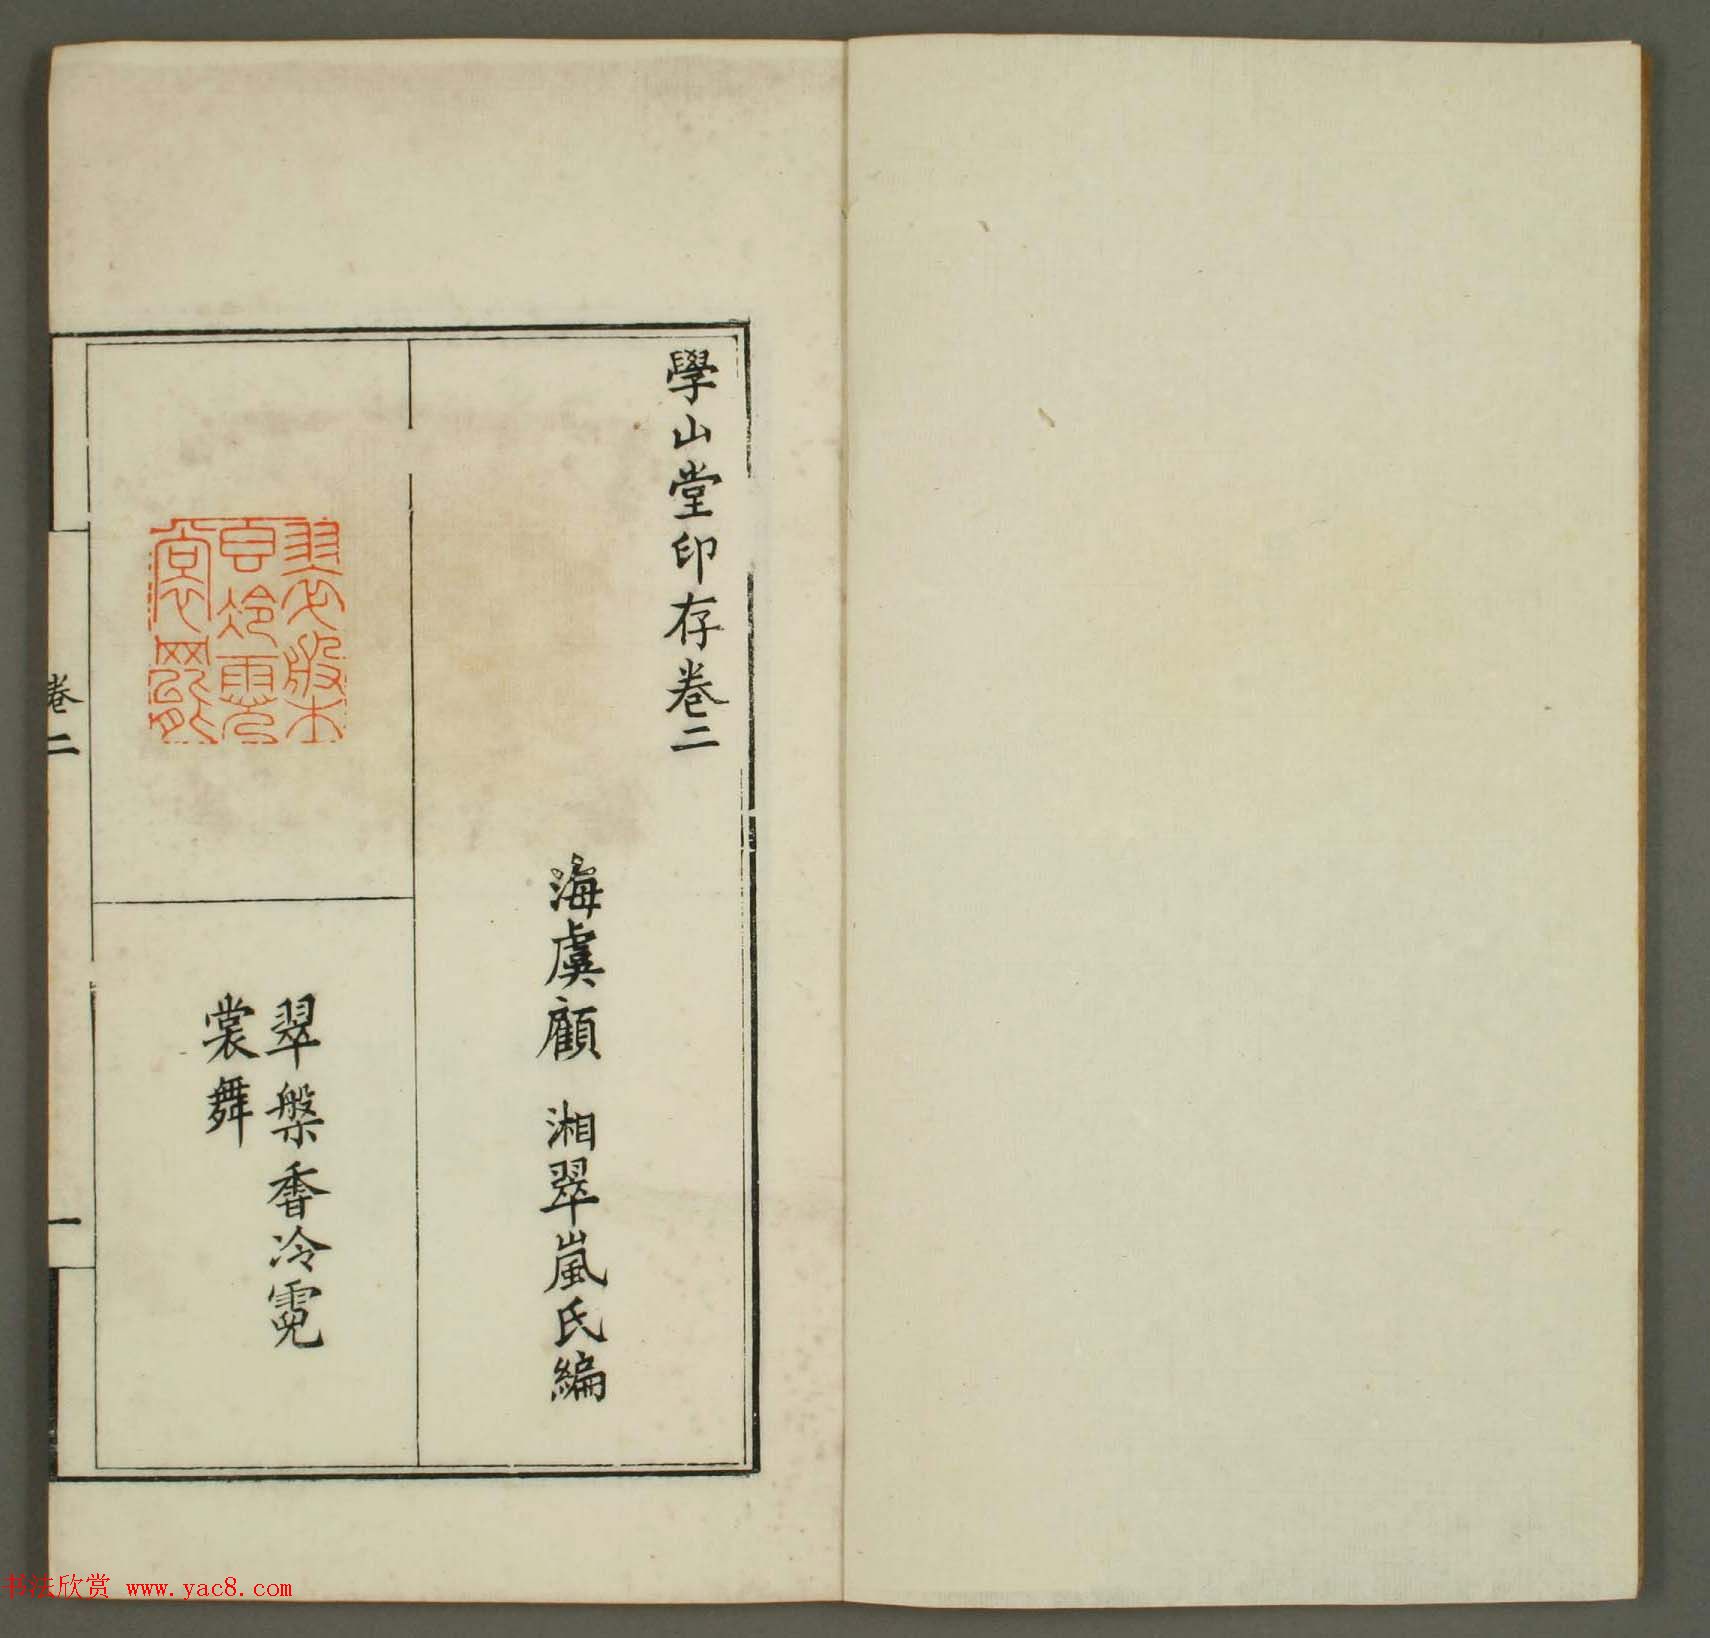 學山堂印存卷二
海虞顧 湘翠嵐氏編
翠槃香冷霓
裳舞
翠槃香冷霓裳舞
卷二
一
书法欣赏 www.yac8.com